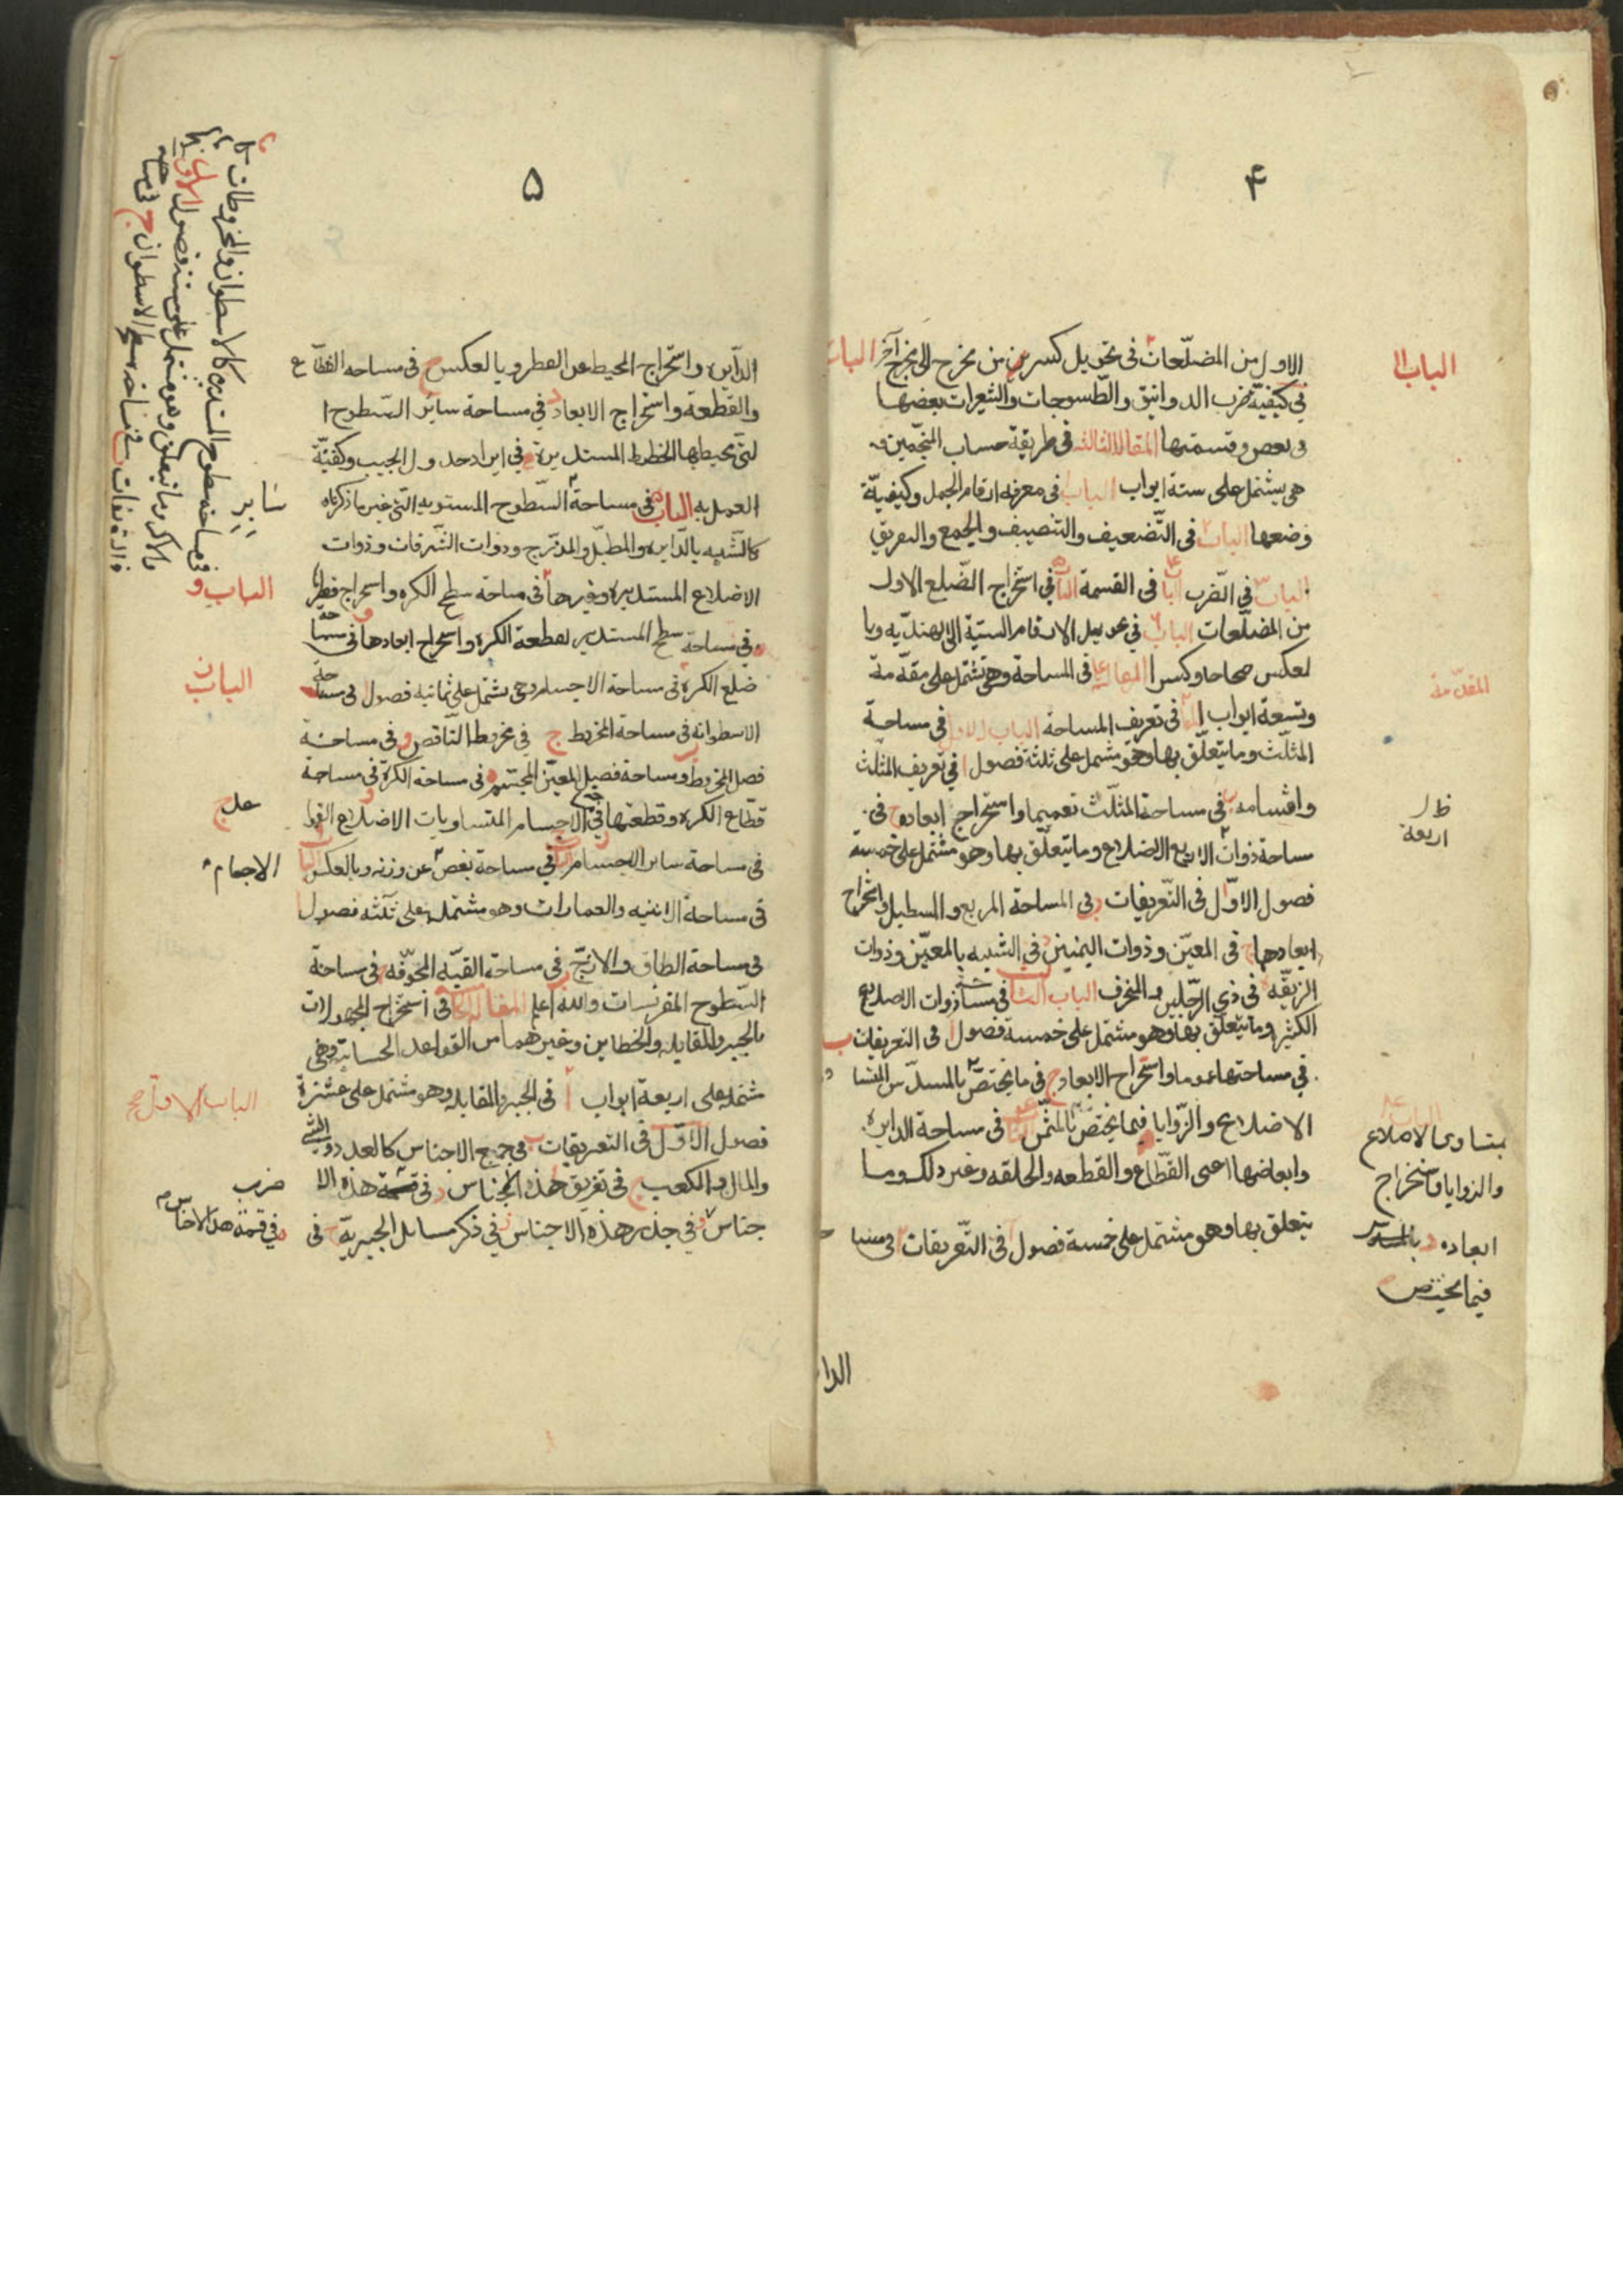 ۴
الاول من المضلّعات في تحويل كسر من مخرج الى مخرج آخر الباب
في كيفيّة ضرب الدوانيق والطّسوجات والشعيرات بعضها
فى بعض وقسمتها المقالة الثالثه فى طريقة حساب المنجّمين و
هى يشتمل على ستة ابواب الباب ا فى معرفة ارقام الجمل وكيفيّة
وضعها الباب فى التّضعيف والتنصيف والجمع والتفريق
الباب فى الضرب الباب فى القسمة الباب فى استخراج الضّلع الاول
من المضلّعات الباب فى تحويل الارقام الستيّة الى الهنديّه وبا
لعكس صحاحا وكسرا المقالة فى المساحة وهى تشتمل على مقدّمة
وتسعة ابواب فى تعريف المساحة الباب الاول فى مساحة
المثلّث وما يتعلّق بها وهو مشتمل على ثلثة فصول ا فى تعريف المثلّث
واقسامه ب فى مساحة المثلّث تعميما واستخراج ابعاده ج فى
مساحة ذوات الاربع الاضلاع وما يتعلّق بها وهو مشتمل على خمسة
فصول الاوّل فى التّعريفات ب فى المساحة المربع والمستطيل واستخراج
ابعادهما ج فى المعيّن وذوات اليمينين د فى الشبيه بالمعيّن وذوات
الزنقّه ه فى ذى الرّجلين والمنحرف الباب الثالث فى مساحة ذوات الاضلاع
الكثيرة وما يتعلّق بها وهو مشتمل على خمسة فصول ا فى التعريفات ب
فى مساحتها عموما واستخراج الابعاد ج فى ما يختصّ بالمسدّس المتسا
الاضلاع والزّوايا فيما يختصّ بالمثمّن فى مساحة الدايره
وابعاضها اعنى القطّاع والقطعه والحلقه وغير ذلك وما
يتعلق بها وهو مشتمل على خمسة فصول ا فى التّعريفات ب فى مسا
الدا
الباب
المقدّمة
ظ ل
اربعة
بمتساوى الاضلاع
والزوايا واستخراج
ابعاده
فيما يختص
۵
الدّايره واستخراج المحيط عن القطر وبالعكس ج فى مساحه القطّاع
والقطعة واستخراج الابعاد د فى مساحة ساير السّطوح ا
لتى يحيط بها الخطوط المستديرة ه فى ايراد جدول الجيب وكيفيّة
العمل به الباب فى مساحة السّطوح المستويه الّتى غير ما ذكرناه
كالشّبيه بالدّايره والمطبّل والمدّرج وذوات الشّرفات وذوات
الاضلاع المستديرة وغيرها فى مساحة سطح الكره واستخراج قطرها
فى مساحة سطح المستدير لقطعة الكره واستخراج ابعادها فى مساحة
ضلع الكره فى مساحة الاجسام وهى يشتمل على ثمانية فصول فى مساحة
الاسطوانه فى مساحة المخروط ج فى مخروط النّاقص فى مساحة
فصل المخروط ومساحة فصيل المعيّن المجسّم فى مساحة الكرة فى مساحة
قطّاع الكره وقطعتها فى الاجسام المتساويات الاضلاع القوا
فى مساحة ساير الاجسام فى مساحة بعض عن وزنه وبالعكس البا
فى مساحة الابنيه والعمارات وهو مشتمل على ثلثه فصول
فى مساحة الطاق والازج فى مساحة القبّه المجوّفه فى مساحة
السّطوح المقرنسات والله اعلم المقالة فى استخراج المجهولات
بالجبر والمقابله والخطاين وغيرهما من القواعد الحسابيّة وهى
مشتمله على اربعة ابواب ا فى الجبر والمقابله وهو مشتمل على عشرة
فصول الاوّل فى التعريفات ب فى جميع الاجناس كالعدد والشئ
والمال والكعب ج فى تفريق هذه الاجناس د فى قسمة هذه الا
جناس و فى جذر هذه الاجناس ز فى ذكر مسايل الجبريّة ح فى
ساير
الباب و
الباب ز
على
الاجسام
الباب الاول صح
ضرب
ه فى قسمة هذه الاجناس
فى مساحة سطوح المستديرة كالاسطوانة والمخروطات
والاكر وما يتعلق وهو مشتمل على ستة فصول الاول